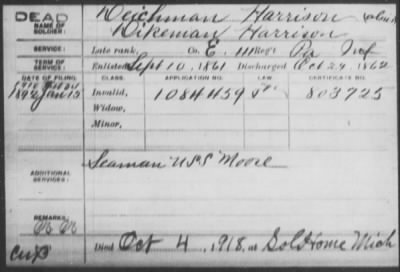 DEAD
NAME OF SOLDIER:
Deichman Harrison (alias)
Dikeman Harrison
SERVICE:
Late rank, Co. E, 111 Reg't Pa Inf
TERM OF SERVICE:
Enlisted Sept 10, 1861 Discharged Oct 29, 1862
DATE OF FILING. CLASS. APPLICATION NO. LAW. CERTIFICATE NO.
1892 Jan 13 Invalid, 1084459 803725
Widow,
Minor,
ADDITIONAL SERVICES:
Seaman USS Moore
REMARKS:
Died Oct 4, 1918, at Sol Home Mich